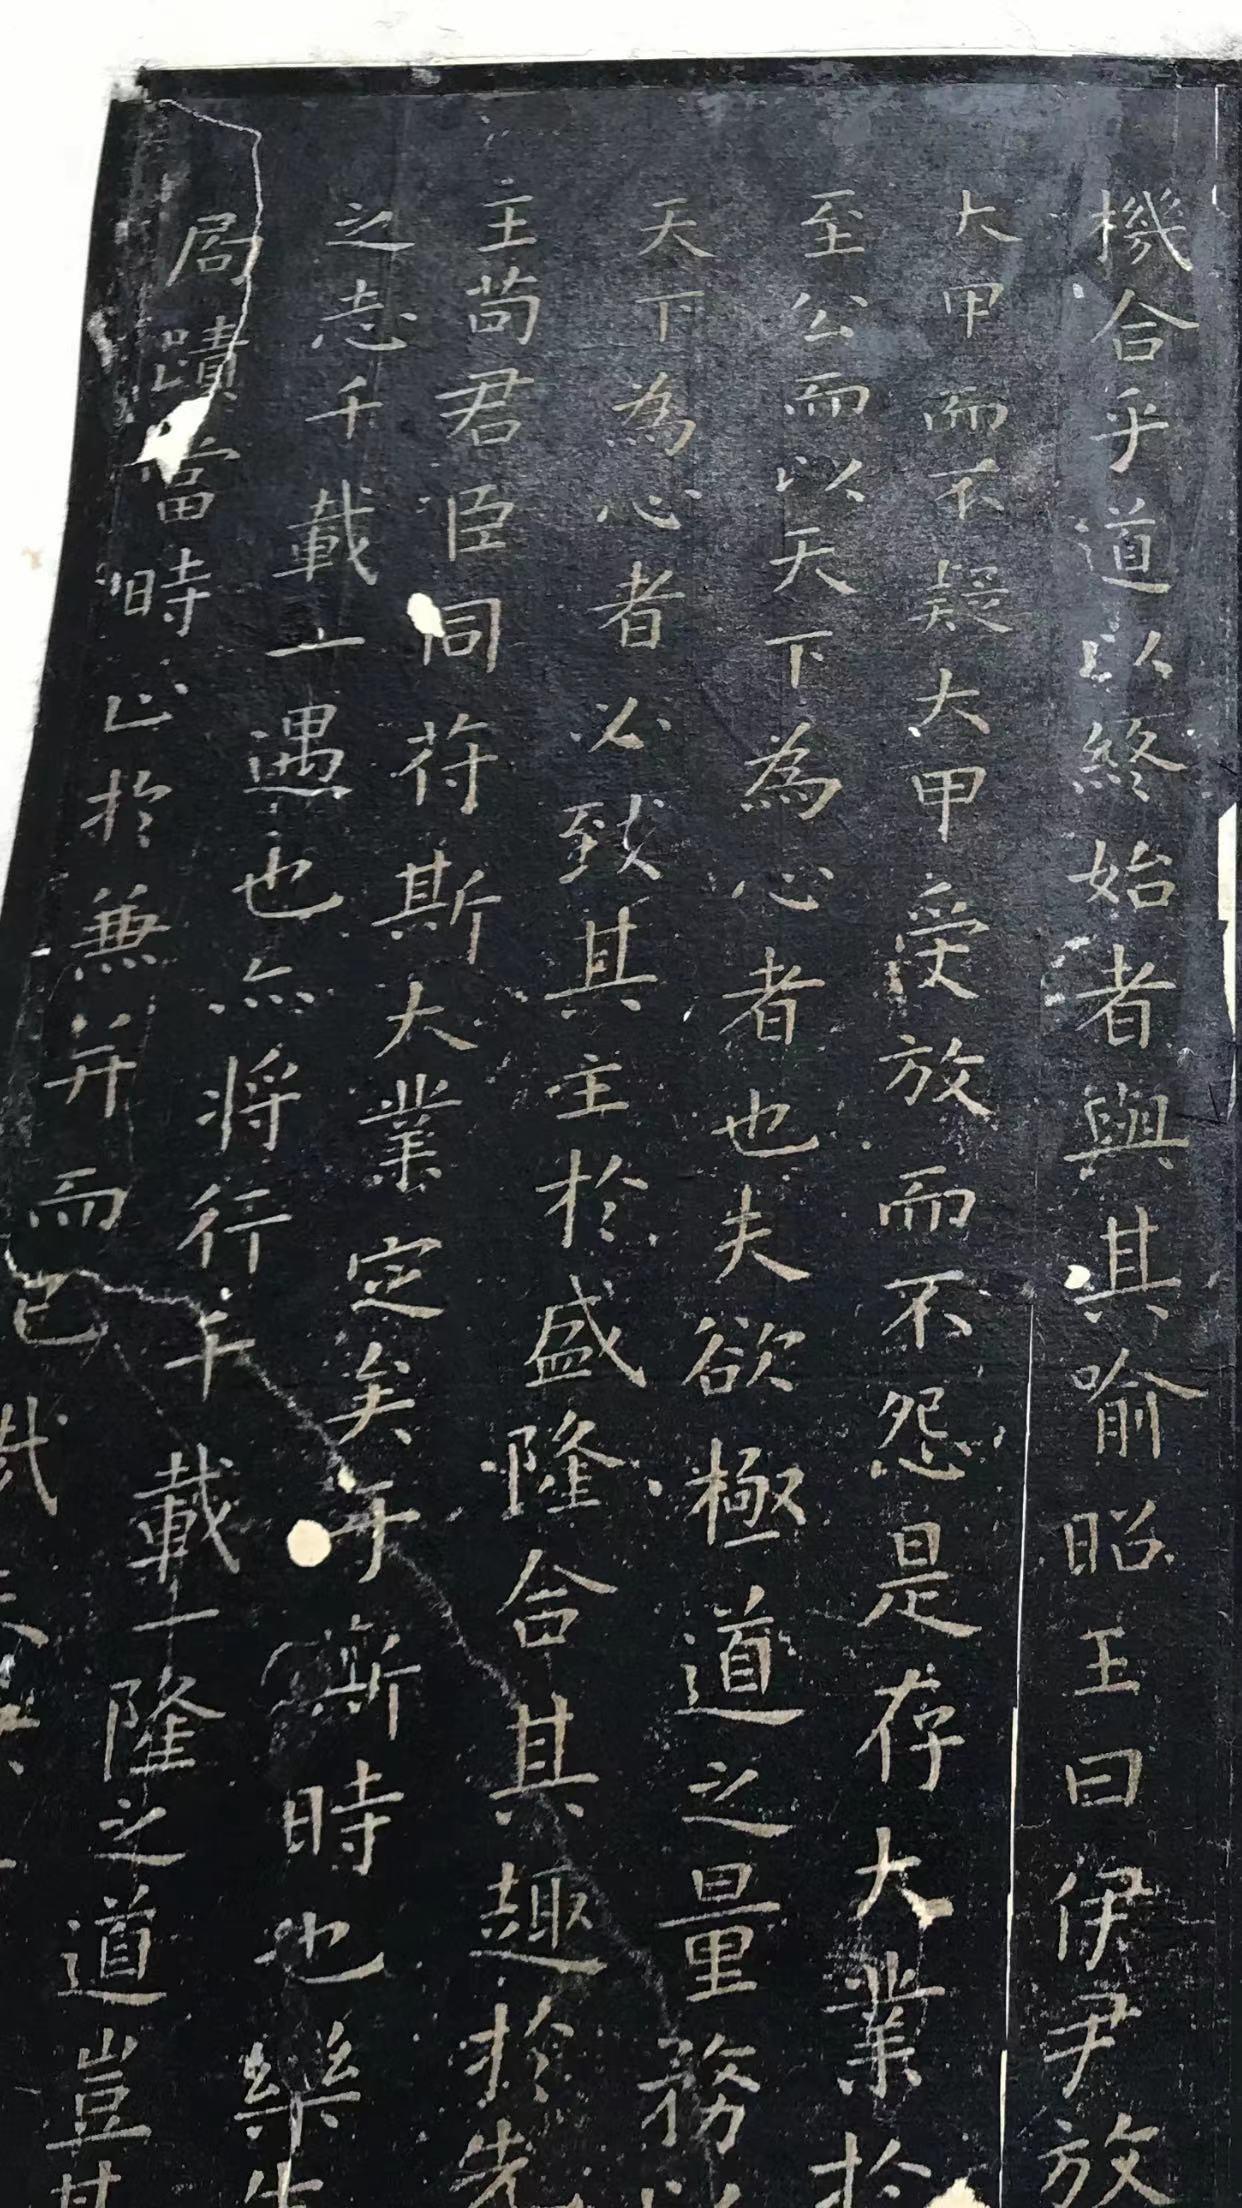 機合乎道以終始者與其喻昭王曰伊尹放
大甲而不疑大甲受放而不怨是存大業於
至公而以天下為心者也夫欲極道之量務以
天下為心者必致其主於盛隆合其趣於先
主苟君臣同符斯大業定矣于斯時也樂生
之志千載一遇也亦將行千載一隆之道豈其
局蹟當時止於兼并而已哉